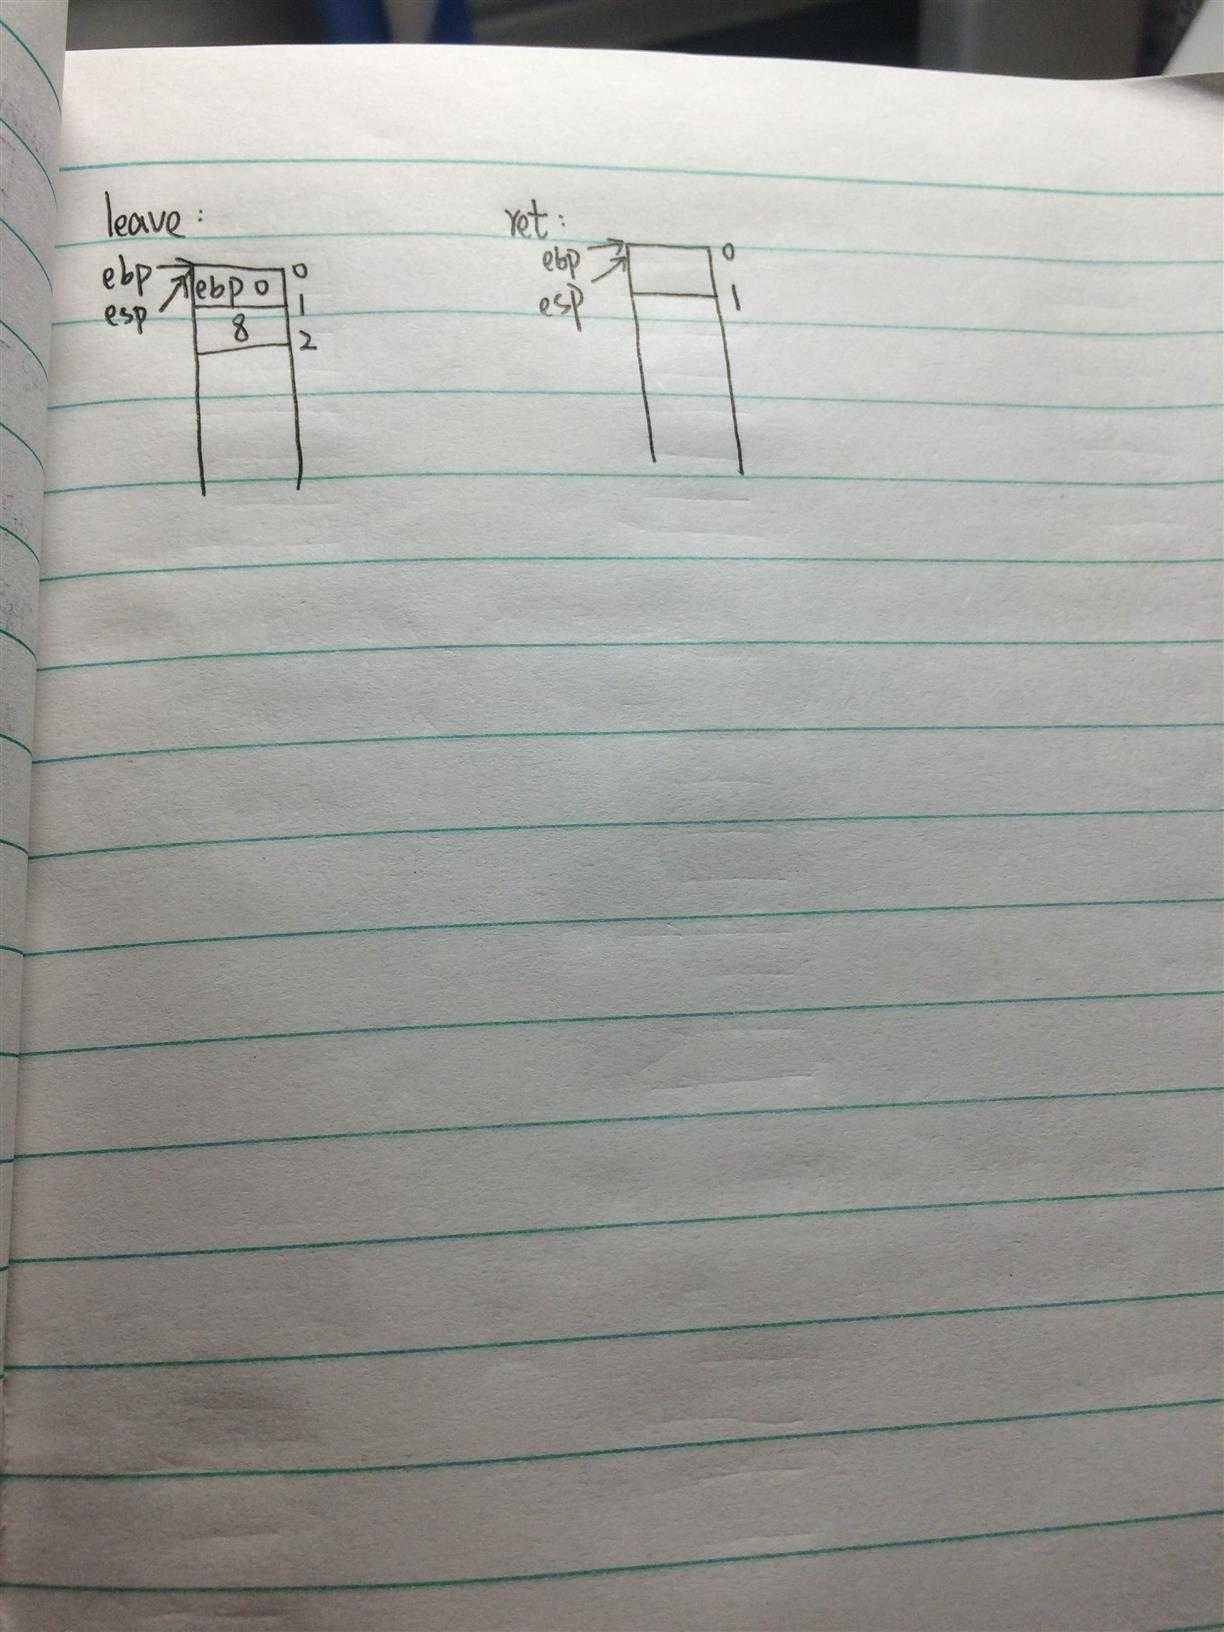 leave:
ebp
esp
ebp 0
8
0
1
2
ret:
ebp
esp
0
1